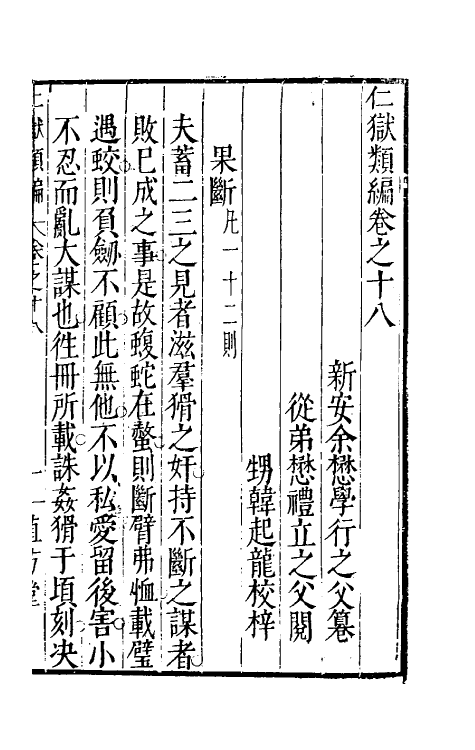 仁獄類編卷之十八
新安余懋學行之父纂
從弟懋禮立之父閱
甥韓起龍校梓
果斷凡一十二則
夫蓄二三之見者滋羣猾之奸持不斷之謀者
敗已成之事是故蝮蛇在螫則斷臂弗恤載璧
遇蛟則負劒不顧此無他不以私愛留後害小
不忍而亂大謀也徃冊所載誅姦猾于頃刻决
仁獄類編 卷之十八 一 直方堂